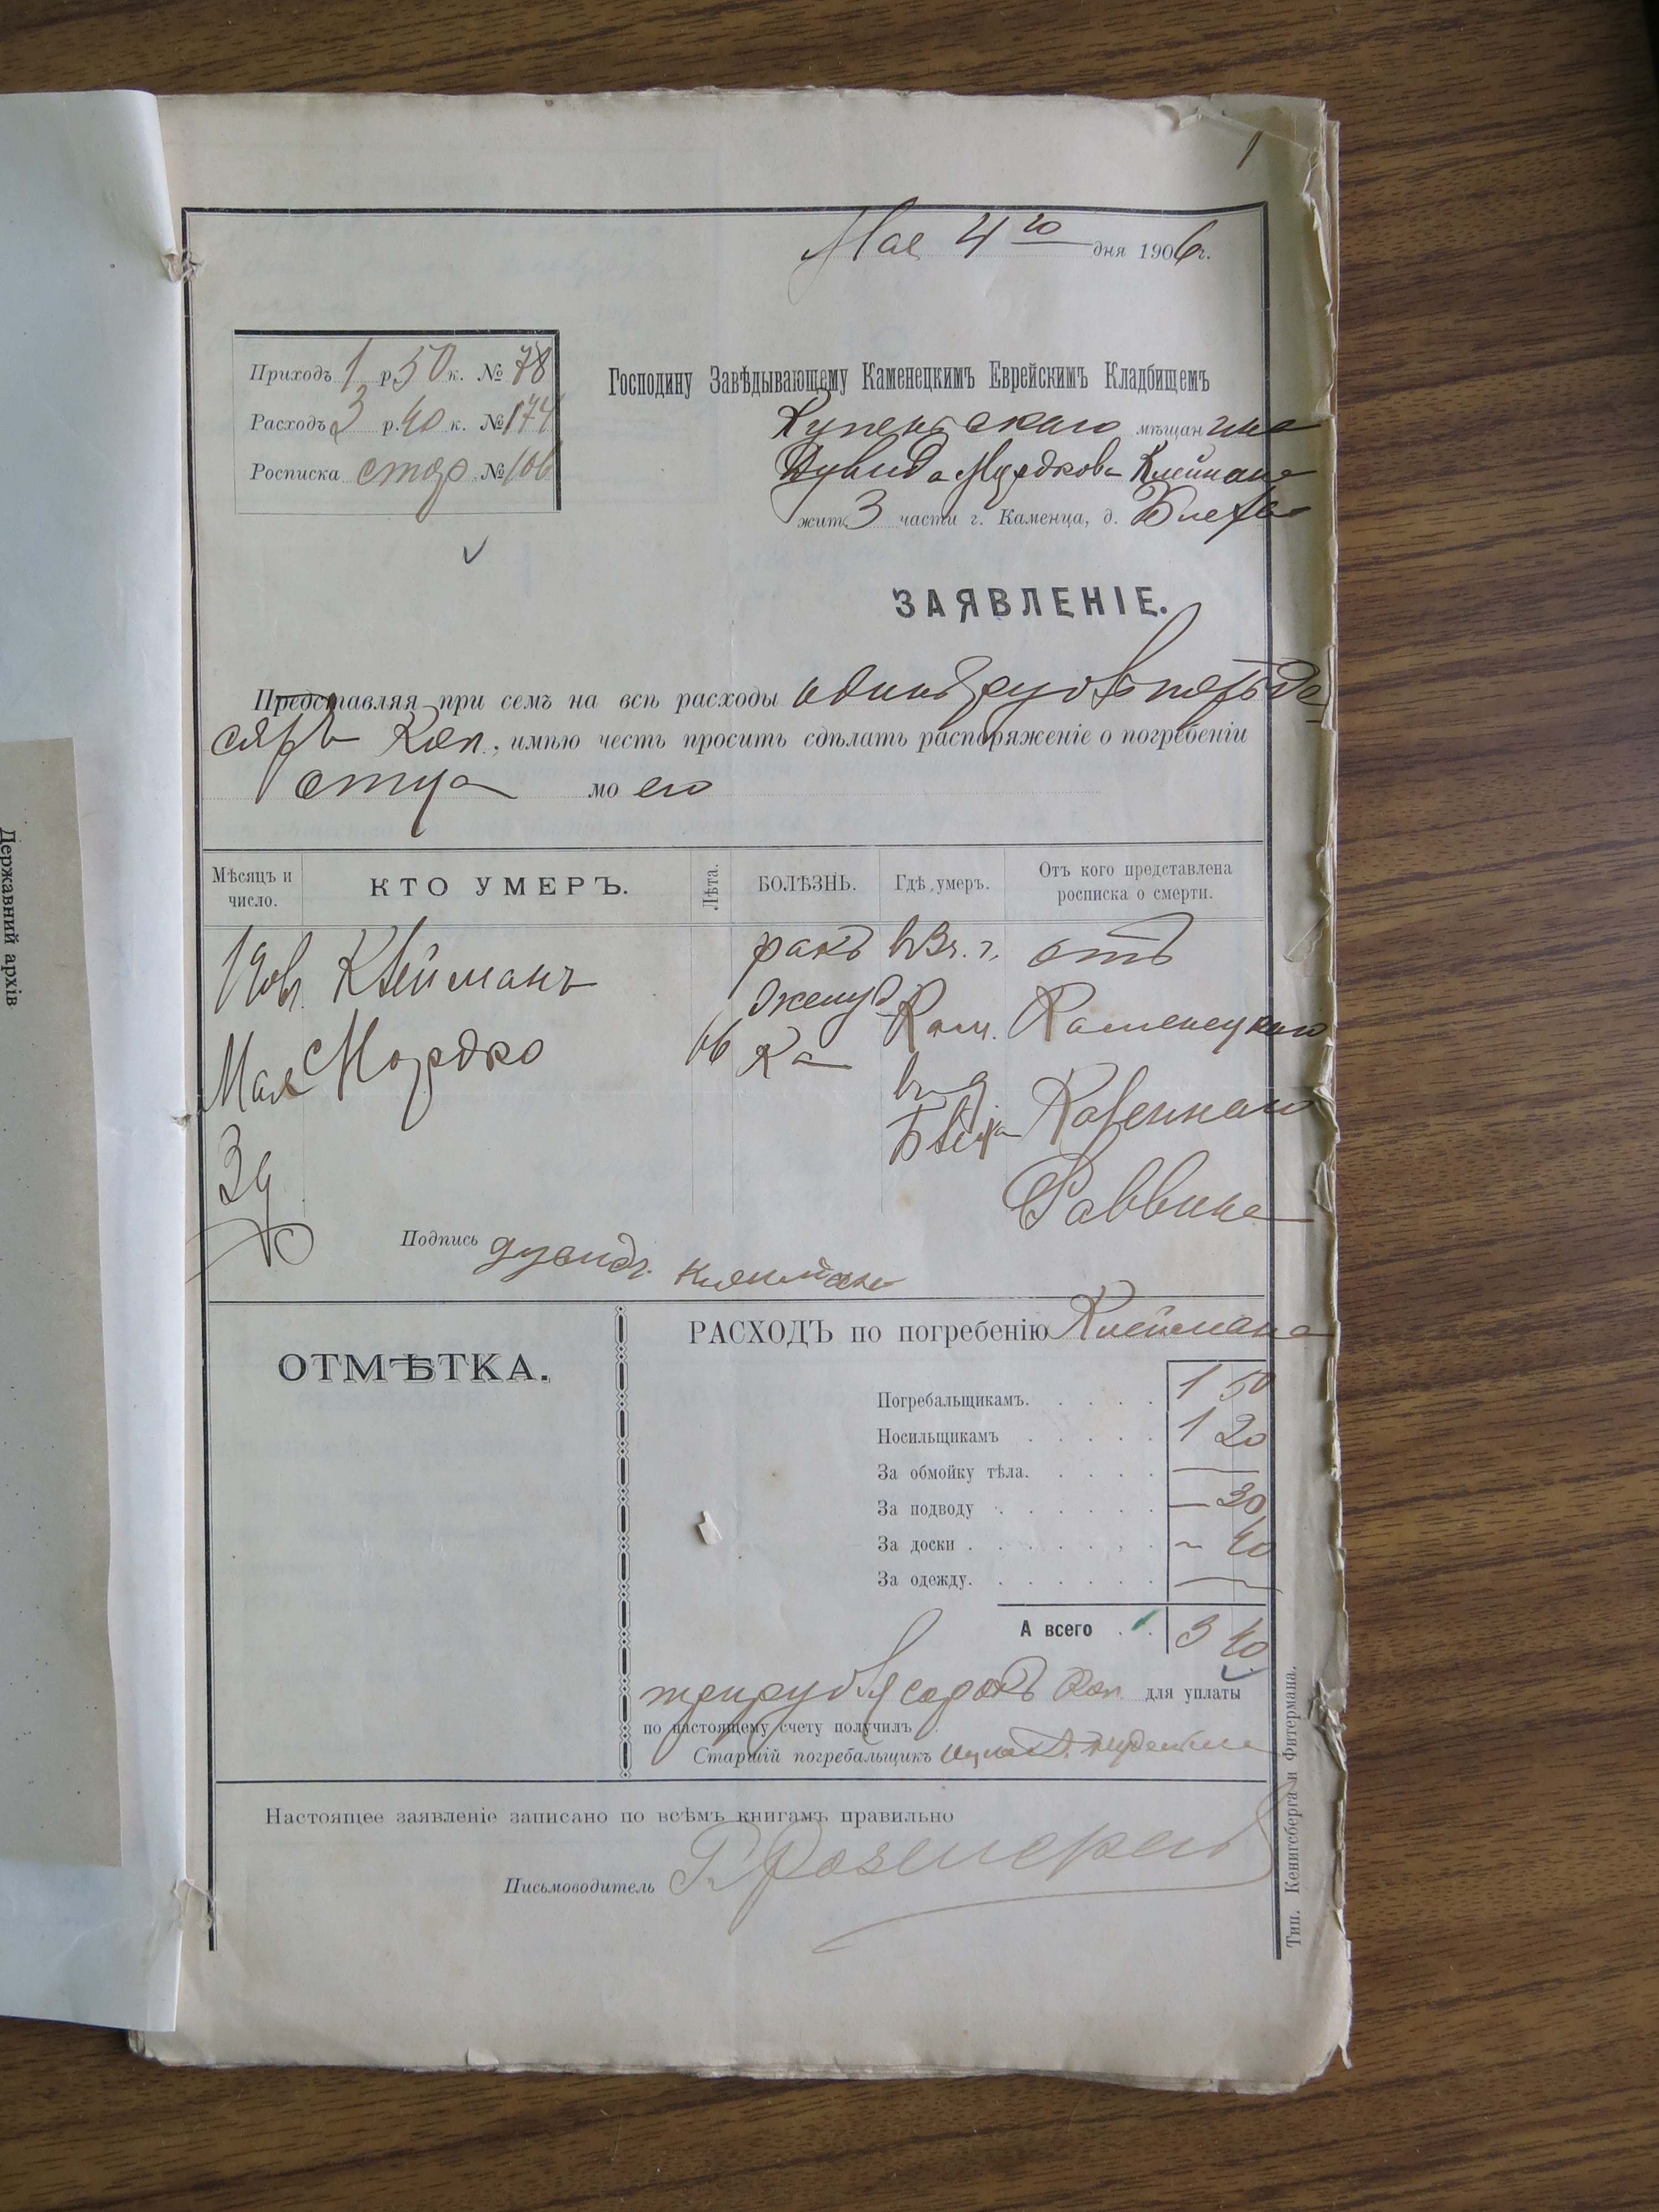 1
Мая 4го дня 1906г.
Приходъ 1 р. 50 к. № 78
Расходъ 3 р. 40 к. № 174
Росписка стар. №
Господину Завѣдывающему Каменецкимъ Еврейскимъ Кладбищемъ
мѣщанина
Дувида Мордкова Клеймана
жит. 3 части г. Каменца, д.
ЗАЯВЛЕНІЕ.
Представляя при семъ на всѣ расходы одинъ рубль пятьде-
сятъ Коп., имѣю честь просить сдѣлать распоряженіе о погребеніи
отца моего
Мѣсяцъ и число.
КТО УМЕРЪ.
Лѣта.
БОЛѢЗНЬ.
Гдѣ умеръ.
Отъ кого представлена росписка о смерти.
Клейманъ
Мордко
Мая
3д
66
ракъ
желуд
ка
Кам.
отъ
Каменецкаго
Казеннаго
Раввина
Подпись дувидъ клейманъ
ОТМѢТКА.
РАСХОДЪ по погребенію Клеймана
Погребальщикамъ. . . . . 1 50
Носильщикамъ . . . . . 1 20
За обмойку тѣла. . . . . —
За подводу . . . . . . — 30
За доски . . . . . . . — 40
За одежду. . . . . . . —
А всего . . 3 40
три рубля сорокъ Коп. для уплаты
по настоящему счету получилъ
Старшій погребальщикъ
Настоящее заявленіе записано по всѣмъ книгамъ правильно
Письмоводитель
Тип. Кенигсберга и Фитермана.
Державний архів